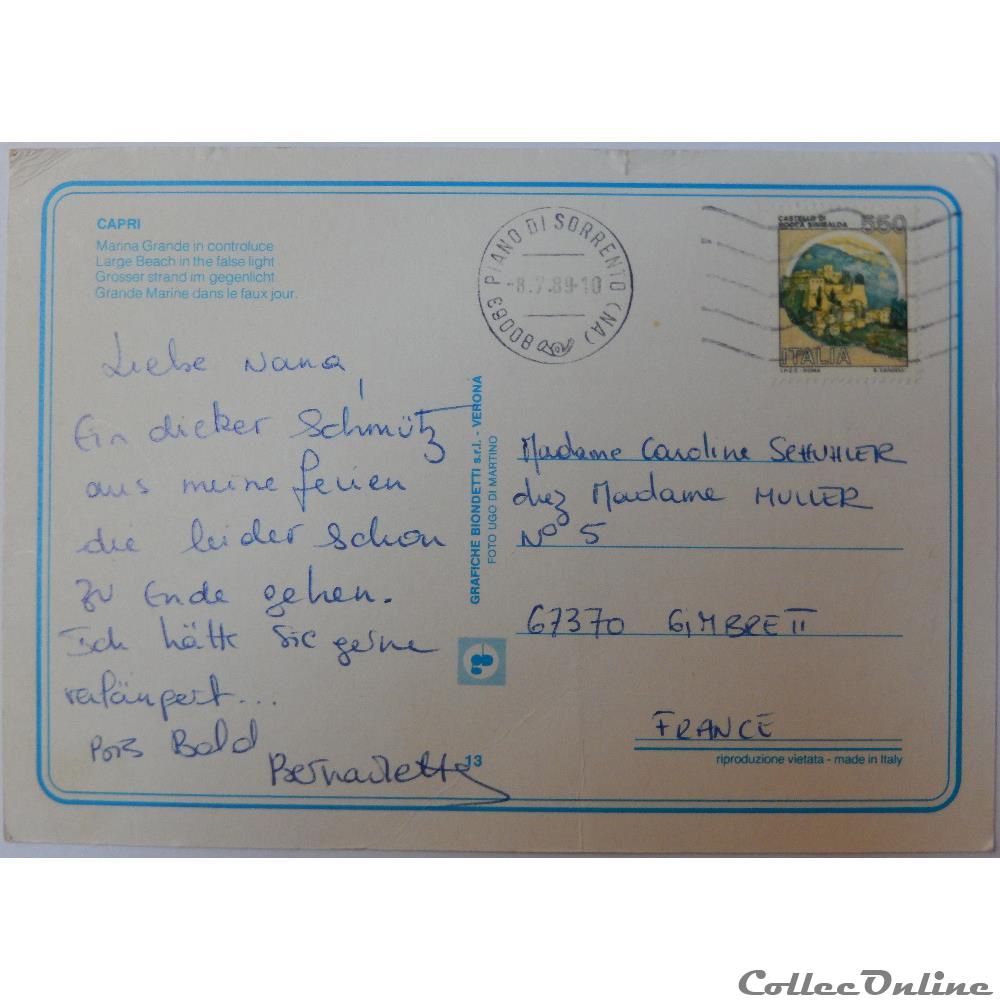 CAPRI
Marina Grande in controluce
Large Beach in the false light
Grosser strand im gegenlicht
Grande Marine dans le faux jour.
80063 PIANO DI SORRENTO (NA)
-8.7.89-10
CASTELLO DI
ROCCA SINIBALDA
550
ITALIA
I.P.Z.S. - ROMA
Liebe Nana,
Ein dicker Schmütz
aus meine ferien
die leider schon
zu Ende gehen.
Ich hätte Sie gerne
verlängert...
Bald
Bernadette
GRAFICHE BIONDETTI s.r.l. - VERONA
FOTO UGO DI MARTINO
13
Madame Caroline SCHUHLER
chez Madame MULLER
N° 5
67370 GIMBRETT
FRANCE
riproduzione vietata - made in Italy
CollecOnline